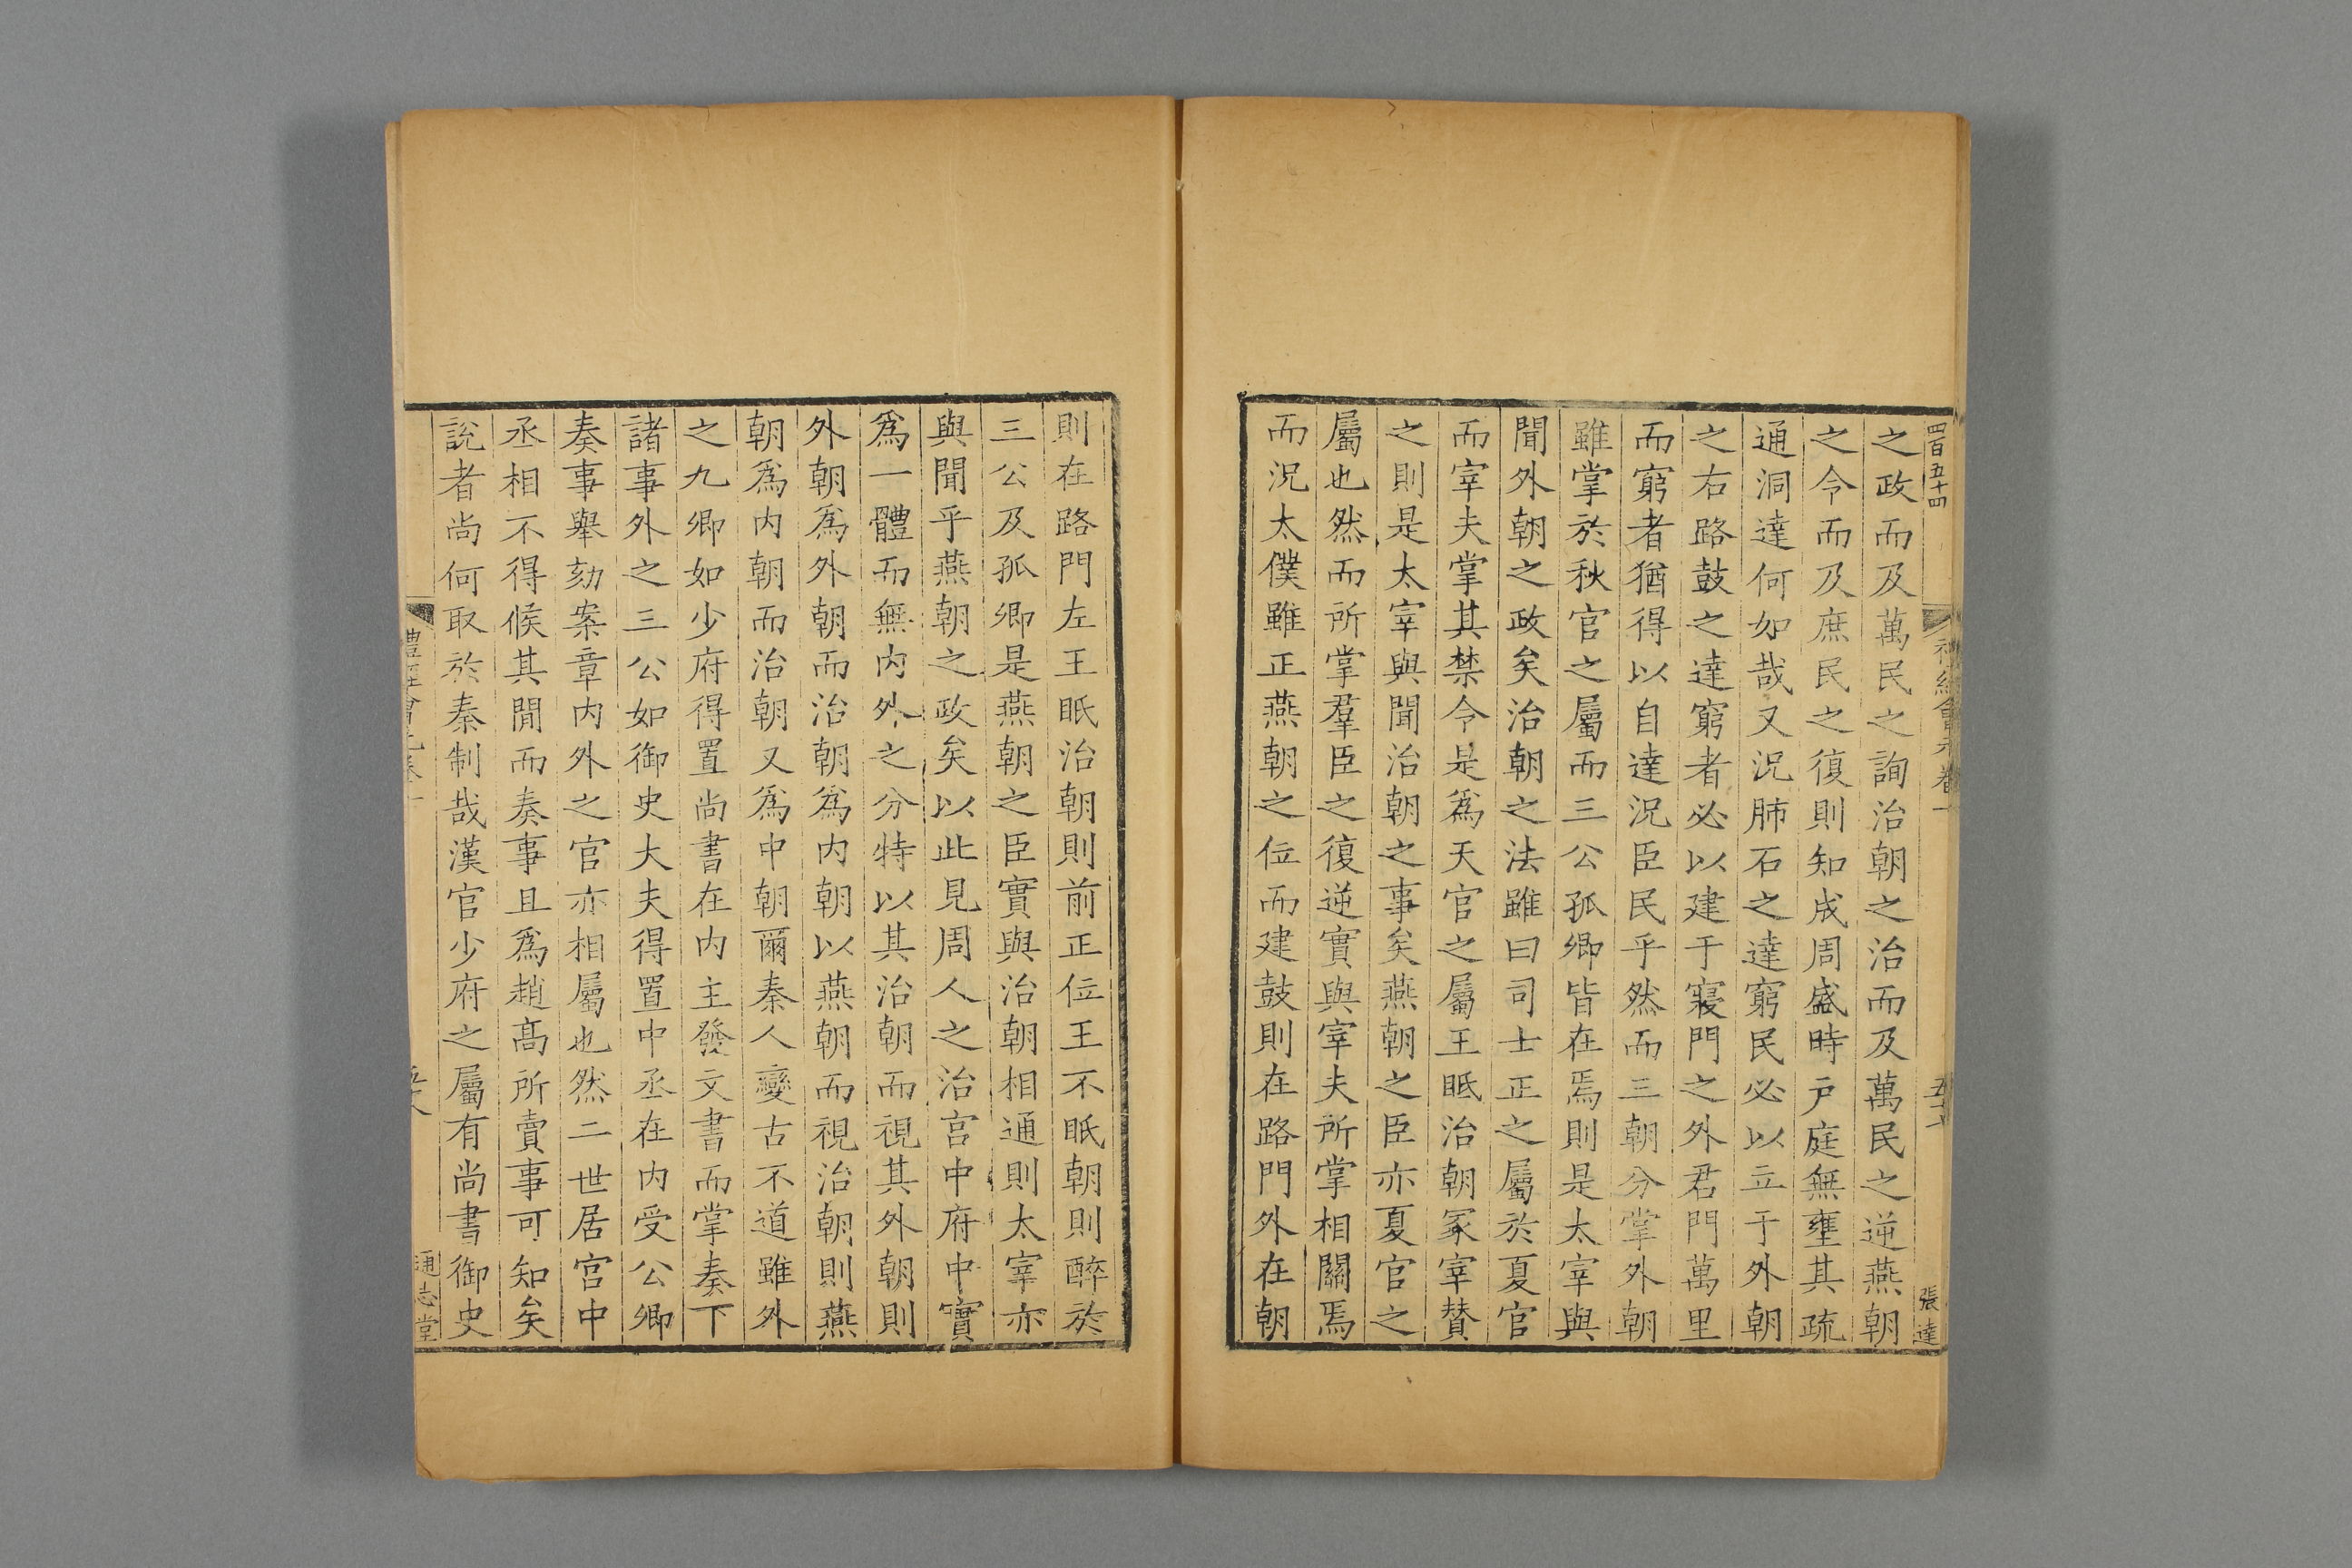 四百五十四
張達
之政而及萬民之詢治朝之治而及萬民之逆燕朝
之令而及庶民之復則知成周盛時戸庭無壅其疏
通洞達何如哉又況肺石之達窮民必以立于外朝
之右路鼓之達窮者必以建于寢門之外君門萬里
而窮者猶得以自達況臣民乎然而三朝分掌外朝
雖掌於秋官之屬而三公孤卿皆在焉則是太宰與
聞外朝之政矣治朝之法雖曰司士正之屬於夏官
而宰夫掌其禁令是爲天官之屬王眂治朝冢宰賛
之則是太宰與聞治朝之事矣燕朝之臣亦夏官之
屬也然而所掌羣臣之復逆實與宰夫所掌相關焉
而況太僕雖正燕朝之位而建鼓則在路門外在朝
則在路門左王眂治朝則前正位王不眂朝則辭於
三公及孤卿是燕朝之臣實與治朝相通則太宰亦
與聞乎燕朝之政矣以此見周人之治宮中府中實
爲一體而無内外之分特以其治朝而視其外朝則
外朝爲外朝而治朝爲内朝以燕朝而視治朝則燕
朝爲内朝而治朝又爲中朝爾秦人變古不道雖外
之九卿如少府得置尚書在内主發文書而掌奏下
諸事外之三公如御史大夫得置中丞在内受公卿
奏事舉劾案章内外之官亦相屬也然二世居宮中
丞相不得候其閒而奏事且爲趙髙所賣事可知矣
說者尚何取於秦制哉漢官少府之屬有尚書御史
通志堂